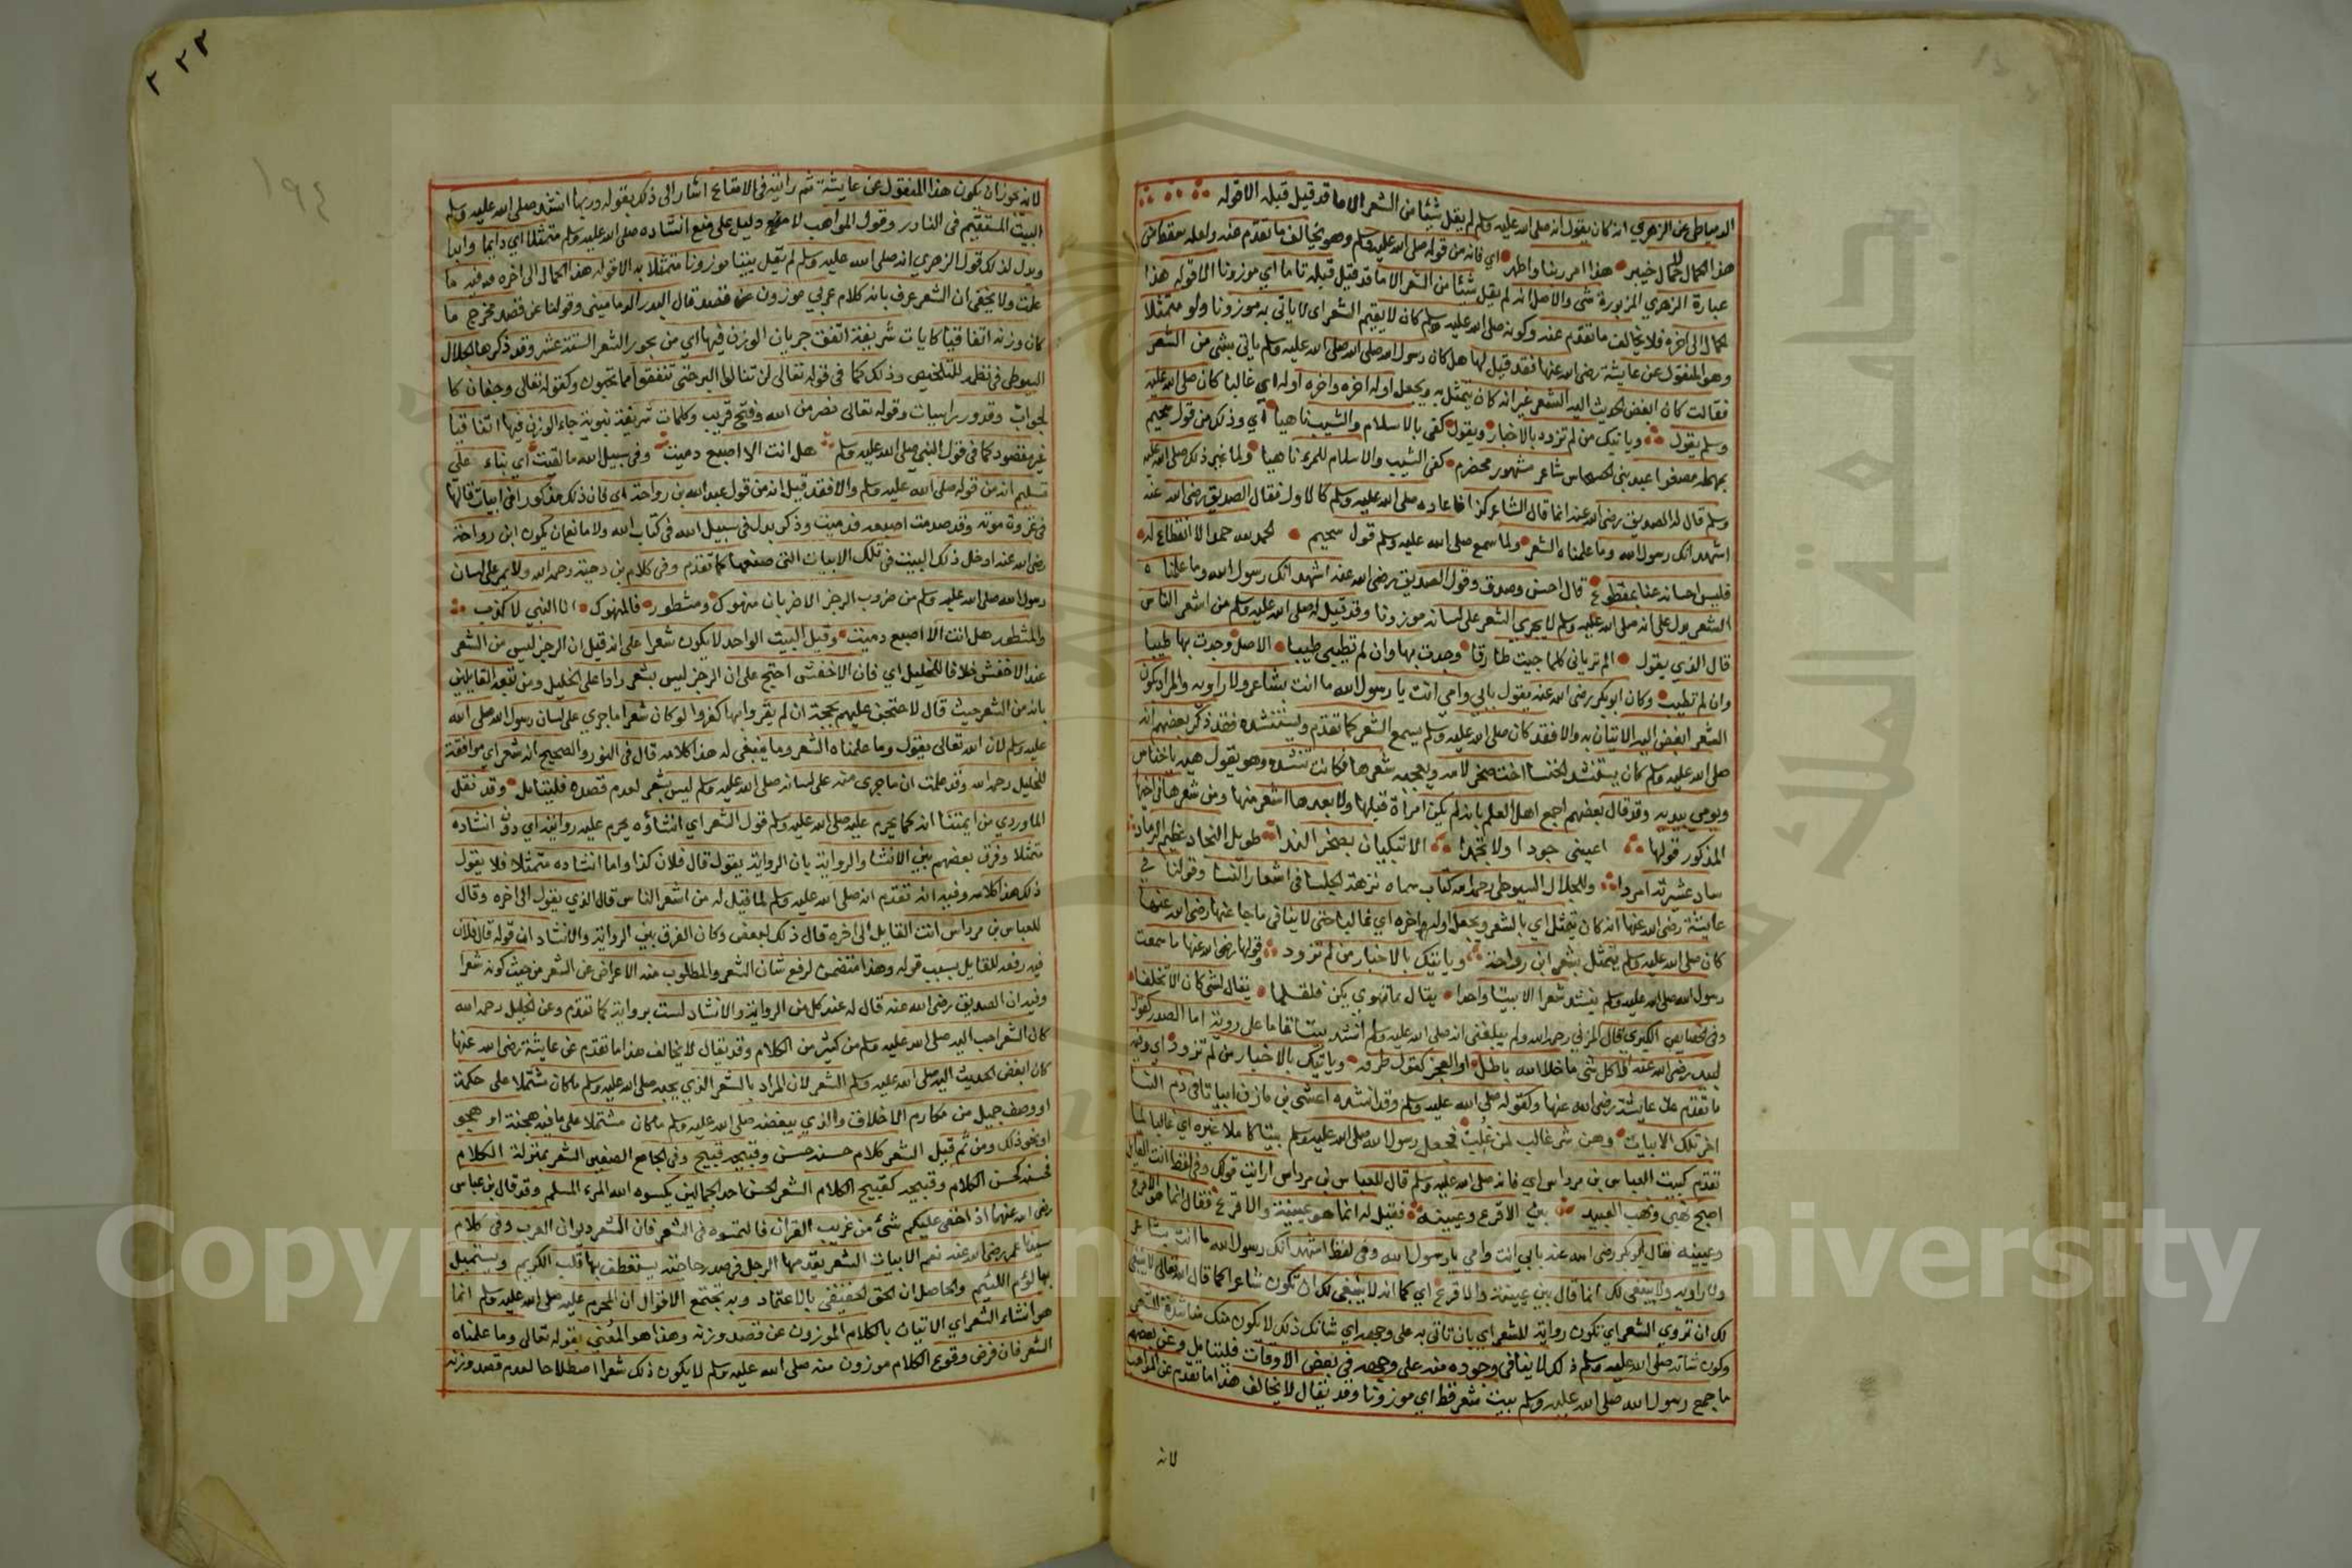 الدمياطي عن الزهري انه كان يقول انه صلى الله عليه وسلم لم يقل شيئا من الشعر الا ما قد قيل قبله الا قوله
هذا الحمال لا حمال خيبر هذا ابر ربنا واطهر اي فانه من قوله صلى الله عليه وسلم وهو يخالف ما تقدم عنه ولعله سقط من
عبارة الزهري المزبورة شي والاصل انه لم يقل شيئا من الشعر الا ما قد قيل قبله تاما اي موزونا الا قوله هذا
الحمال الى اخره فلا يخالف ما تقدم عنه وكونه صلى الله عليه وسلم كان لا يقيم الشعر اي لا ياتي به موزونا ولو متمثلا
وهو المنقول عن عايشة رضي الله عنها فقد قيل لها هل كان رسول الله صلى الله عليه وسلم ياتي بشي من الشعر
فقالت كان ابغض الحديث اليه الشعر غير انه كان يتمثل به ويجعل اوله اخره واخره اوله اي غالبا كان صلى الله عليه
وسلم يقول وياتيك من لم تزود بالاخبار ويقول كفى بالاسلام والشيب ناهيا اي وذلك من قول سحيم
عبد بني الحسحاس شاعر مشهور مخضرم كفى الشيب والاسلام للمرء ناهيا ولما غير ذلك صلى الله عليه
وسلم قال له الصديق رضي الله عنه انما قال الشاعر كذا فاعاده صلى الله عليه وسلم كالاول فقال الصديق رضي الله عنه
اشهد انك رسول الله وما علمناه الشعر ولما سمع صلى الله عليه وسلم قول سحيم الحمد لله حمدا لا انقطاع له
فليس احسانه عنا بمقطوع قال احسن وصدق وقول الصديق رضي الله عنه اشهد انك رسول الله وما علمناه
الشعر يدل على انه صلى الله عليه وسلم لا يجري الشعر على لسانه موزونا وقد قيل له صلى الله عليه وسلم من اشعر الناس
قال الذي يقول الم ترياني كلما جيت طارقا وجدت بها وان لم تطيب طيبا الاصل وجدت بها طيبا
وان لم تطيب وكان ابو بكر رضي الله عنه يقول بابي وامي انت يا رسول الله ما انت بشاعر ولا راويه والمراد بكون
الشعر ابغض اليه الاتيان به والا فقد كان صلى الله عليه وسلم يسمع الشعر كما تقدم ويستنشده فقد ذكر بعضهم انه
صلى الله عليه وسلم كان يستنشد الخنسا اخت صخر لامه ويعجبه شعرها فكانت تنشده وهو يقول هيه يا خناس
ويومي بيديه وقد قال بعضهم اجمع اهل العلم بانه لم يكن امراة قبلها ولا بعدها اشعر منها ومن شعرها في اخيها
المذكور قولها اعيني جودا ولا تجمدا الا تبكيان بصخر الندا طويل النجاد عظيم الرماد
ساد عشيرته امردا وللجلال السيوطي رحمه الله كتاب سماه نزهة الجلسا في اشعار النسا وقولنا في
عايشة رضي الله عنها انه كان يتمثل اي بالشعر ويجعل اوله اخره اي غالبا حتى لا ينافي ما جا عنها رضي الله عنها
كان صلى الله عليه وسلم يتمثل بشعر ابن رواحة وياتيك بالاخبار من لم تزود وقولها رضي الله عنها ما سمعت
رسول الله صلى الله عليه وسلم ينشد شعرا الا بيتا واحدا يقال بما تهوي يكن فلقلما يقال لشي كان الا تخلفا
وفي الخصايص الكبرى قال المزني رحمه الله ولم يبلغني انه صلى الله عليه وسلم انشد بيتا تاما على رويته اما الصدر كقول
لبيد رضي الله عنه الا كل شي ما خلا الله باطل او العجز كقول طرفه وياتيك بالاخبار من لم تزود اي وفيه
ما تقدم عن عايشة رضي الله عنها وكقوله صلى الله عليه وسلم وقد انشده اعشى بن مازن ابياتا في ذم النسا
اخر تلك الابيات وهن شر غالب لمن غلب فجعل رسول الله صلى الله عليه وسلم بيتا كاملا غيره اي غالبا لما
تقدم كبيت العباس بن مرداس اي فانه صلى الله عليه وسلم قال للعباس بن مرداس ارايت قولك وفي لفظ انت القايل
اصبح نهبي ونهب العبيد بين الاقرع وعيينة فقيل له انما هو عيينة والاقرع فقال انما هو الاقرع
وعيينه فقال ابو بكر رضي الله عنه بابي انت وامي يا رسول الله وفي لفظ اشهد انك رسول الله ما انت بشاعر
ولا راويه ولا ينبغي لك انما قال بين عيينة والاقرع اي كما انه لا ينبغي لك ان تكون شاعرا كما قال الله تعالى لا ينبغي
لك ان تروي الشعر اي تكون رواية للشعر اي بان تاتي به على وجهه اي شانك ذلك لا يكون منك
وكون شانه صلى الله عليه وسلم ذلك لا ينافي وجوده منه على وجهه في بعض الاوقات فليتامل وعن بعضهم
ما جمع رسول الله صلى الله عليه وسلم بيت شعر قط اي موزونا وقد يقال لا يخالف هذا ما تقدم عن المواهب
لانه
٢٢٣
١٩٤
لانه يجوز ان يكون هذا المنقول عن عايشة ثم رايته في الامتاع اشار الى ذلك بقوله وربما انشد صلى الله عليه وسلم
البيت المستقيم في النادر وقول المواهب لا دليل على منع انشاده صلى الله عليه وسلم متمثلا اي دايما وابدا
ويدل لذلك قول الزهري انه صلى الله عليه وسلم لم يقل بيتا موزونا متمثلا به الا قوله هذا الحمال الى اخره وفيه ما
علمت ولا يخفى ان الشعر عرف بانه كلام عربي موزون عن قصد قال البدر الدماميني وقولنا عن قصد مخرج ما
كان وزنه اتفاقيا كايات شريفة اتفق جريان الوزن فيها اي من بحور الشعر الستة عشر وقد ذكرها الجلال
السيوطي في نظمه للتلخيص وذلك كما في قوله تعالى لن تنالوا البر حتى تنفقوا مما تحبون وكقوله تعالى وجفان كا
لجواب وقدور راسيات وقوله تعالى نصر من الله وفتح قريب وكلمات شريفة نبوية جاء الوزن فيها اتفاقيا
غير مقصود كما في قول النبي صلى الله عليه وسلم هل انت الا اصبع دميت وفي سبيل الله ما لقيت اي بناء على
تسليم انه من قوله صلى الله عليه وسلم والا فقد قيل انه من قول عبد الله بن رواحة اي فان ذلك مذكور في ابيات قالها
في غزوة موته وقد صدمت اصبعه فدميت وذكر بدل في سبيل الله في كتاب الله ولا مانع ان يكون ابن رواحة
رضي الله عنه ادخل ذلك البيت في تلك الابيات التي صنعها كما تقدم وفي كلام بن دحية رحمه الله ولا يمر على لسان
رسول الله صلى الله عليه وسلم من ضروب الرجز الا ضربان منهوك ومشطور فالمنهوك انا النبي لا كذب
والمشطور هل انت الا اصبع دميت وقيل البيت الواحد لا يكون شعرا على انه قيل ان الرجز ليس من الشعر
عند الاخفش خلافا للخليل اي فان الاخفش احتج على ان الرجز ليس بشعر رادا على الخليل ومن تبعه القايلين
بانه من الشعر حيث قال لاحتجن عليهم بحجة ان لم يقروا بها كفروا لو كان شعرا ما جري على لسان رسول الله صلى الله
عليه وسلم لان الله تعالى يقول وما علمناه الشعر وما ينبغي له هذا كلامه قال في النور والصحيح انه شعر اي موافقة
للخليل رحمه الله وقد علمت ان ما جرى منه على لسانه صلى الله عليه وسلم ليس بشعر لعدم قصده فليتامل وقد نقل
الماوردي من ايمتنا انه كما يحرم عليه صلى الله عليه وسلم قول الشعر اي انشاؤه يحرم عليه روايته اي دون انشاده
متمثلا وفرق بعضهم بين الانشا والرواية بان الرواية يقول قال فلان كذا واما انشاده متمثلا فلا يقول
ذلك هذا كلامه وفيه انه تقدم انه صلى الله عليه وسلم لما قيل له من اشعر الناس قال الذي يقول الى اخره وقال
للعباس بن مرداس انت القايل الى اخره قال ذلك لبعض وكان الفرق بين الرواية والانشاد ان قوله قال فلان
فيه رفعه للقايل بسبب قوله وهذا متضمن لرفع شان الشعر والمطلوب منه الاعراض عن الشعر من حيث كونه شعرا
وفيه ان الصديق رضي الله عنه قال له عند كل من الرواية والانشاد لست برواية كما تقدم وعن الخليل رحمه الله
كان الشعر احب اليه صلى الله عليه وسلم من كثير من الكلام وقد يقال لا يخالف هذا ما تقدم عن عايشة رضي الله عنها
كان ابغض الحديث اليه صلى الله عليه وسلم الشعر لان المراد بالشعر الذي يحبه صلى الله عليه وسلم ما كان مشتملا على حكمة
او وصف جميل من مكارم الاخلاق والذي يبغضه صلى الله عليه وسلم ما كان مشتملا على ما فيه هجنة او هجو
او نحو ذلك ومن ثم قيل الشعر كلام حسنه حسن وقبيحه قبيح وفي الجامع الصغير الشعر بمنزلة الكلام
فحسنه كحسن الكلام وقبيحه كقبيح الكلام الشعر الحسن احد الجمالين يكسوه الله المرء المسلم وقد قال بن عباس
رضي الله عنهما اذا خفي عليكم شئ من غريب القران فالتمسوه في الشعر فان الشعر ديوان العرب وفي كلام
سيدنا عمر رضي الله عنه نعم الابيات الشعر يقدمها الرجل في صدر حاجته يستعطف بها قلب الكريم ويستميل
بها لوم اللئيم والحاصل ان الحق الحقيقي بالاعتماد وبه تجتمع الاقوال ان المحرم عليه صلى الله عليه وسلم انما
هو انشاء الشعر اي الاتيان بالكلام الموزون عن قصد وزنه وهذا هو المعني بقوله تعالى وما علمناه
الشعر فان فرض وقوع الكلام موزون منه صلى الله عليه وسلم لا يكون ذلك شعرا اصطلاحا لعدم قصد وزنه
جامعة الملك سعود
Copyright © King Saud University